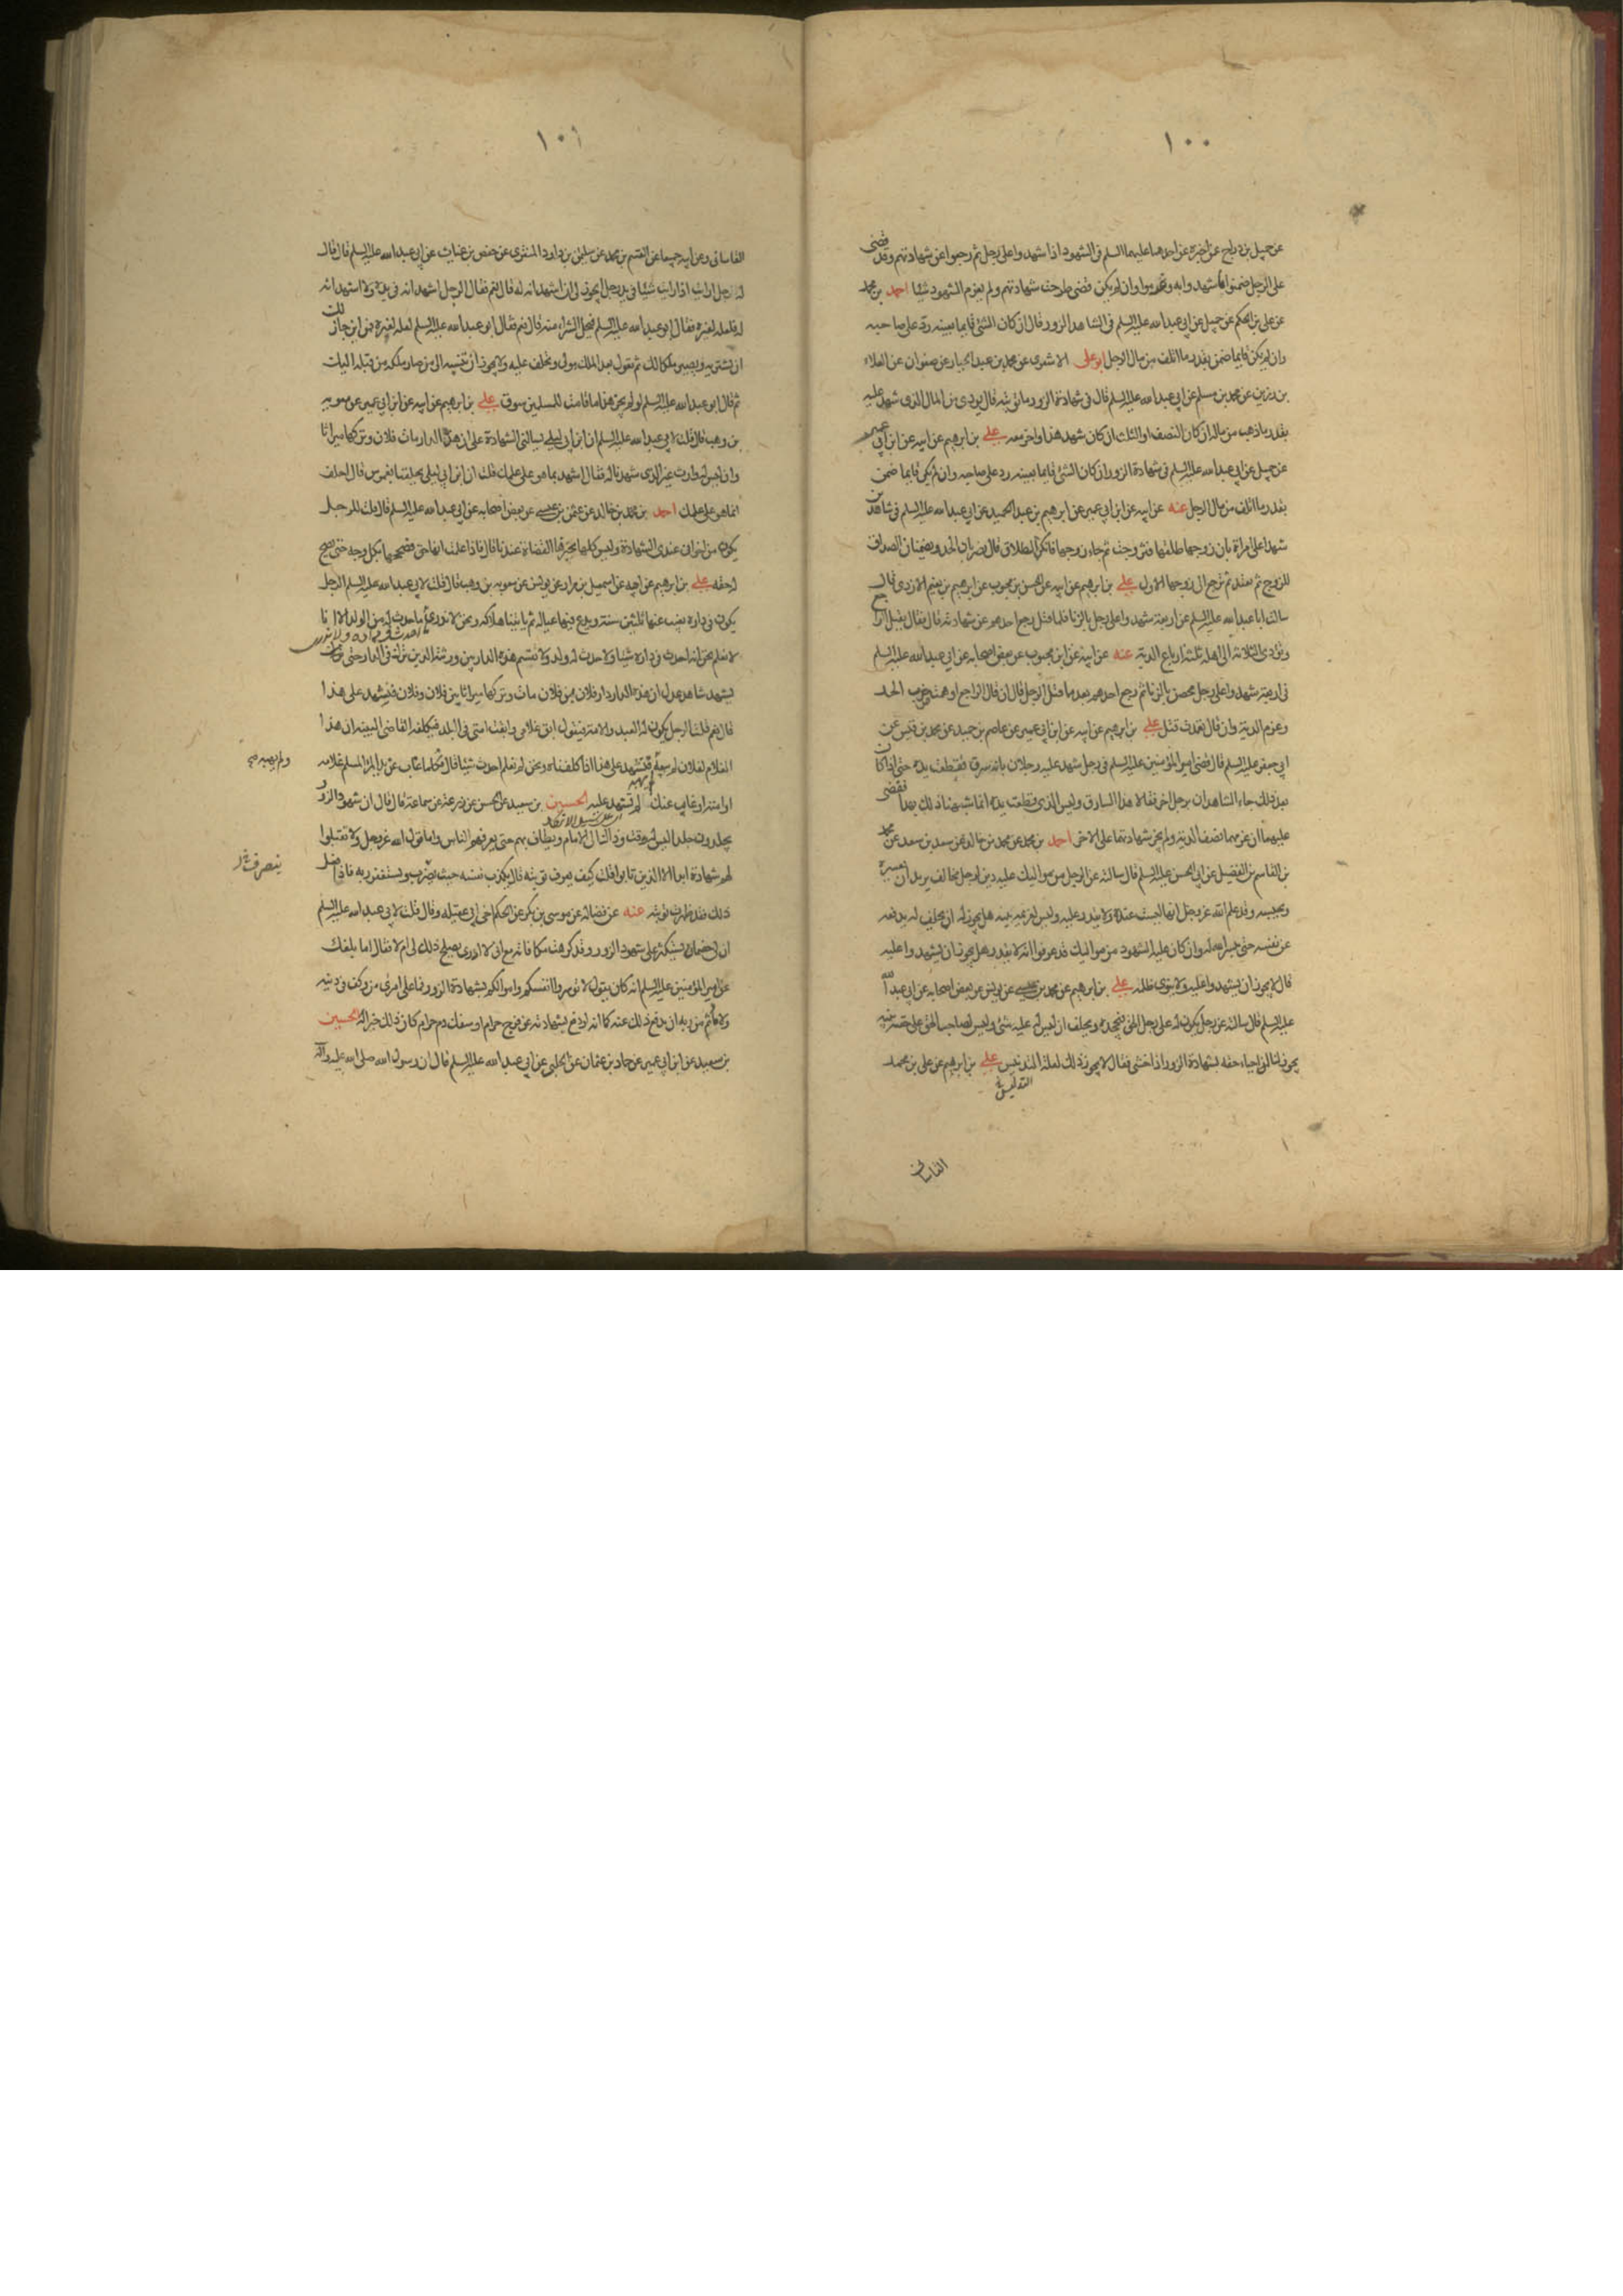 ١٠٠
عن جميل بن دراج عمن اخبره عن احدهما عليهما السلم فى الشهود اذا شهدوا على رجل ثم رجعوا عن شهادتهم وقد قضى
على الرجل ضمنوا ما شهدوا به وغرموا وان لم يكن قضى طرحت شهادتهم ولم يغرم الشهود شيئا احمد بن محمد
عن على بن الحكم عن جميل عن ابى عبد الله عليه السلم فى الشاهد الزور قال ان كان الشئ قايما بعينه رد على صاحبه
وان لم يكن قايما ضمن بقدر ما اتلف من مال الرجل ابو على الاشعرى عن محمد بن عبد الجبار عن صفوان عن العلاء
بن رزين عن محمد بن مسلم عن ابى عبد الله عليه السلم قال فى شهادة الزور ما توبته قال يودى من المال الذى شهد عليه
بقدر ما ذهب من ماله ان كان النصف او الثلث ان كان شهد هذا واخر معه على بن ابرهيم عن ابيه عن ابن ابى عمير
عن جميل عن ابى عبد الله عليه السلم فى شهادة الزور ان كان الشئ قايما بعينه رد على صاحبه وان لم يكن قايما ضمن
بقدر ما اتلف من مال الرجل عنه عن ابيه عن ابن ابى عمير عن ابرهيم بن عبد الحميد عن ابى عبد الله عليه السلم فى شاهدين
شهدا على امراة بان زوجها طلقها فتزوجت ثم جاء زوجها فانكر الطلاق قال يضربان الحد ويضمنان الصداق
للزوج ثم تعتد ثم ترجع الى زوجها الاول على بن ابرهيم عن ابيه عن الحسن بن محبوب عن ابرهيم بن نعيم الازدى قال
سالت ابا عبد الله عليه السلم عن اربعة شهدوا على رجل بالزنا فلما قتل رجع احدهم عن شهادته قال فقال يقتل الراجع
ويؤدى الثلاثة الى اهله ثلثة ارباع الدية عنه عن ابيه عن ابن محبوب عن بعض اصحابه عن ابى عبد الله عليه السلم
فى اربعة شهدوا على رجل محصن بالزنا ثم رجع احدهم بعد ما قتل الرجل قال ان قال الراجع اوهمت ضرب الحد
وغرم الدية وان قال تعمدت قتل على بن ابرهيم عن ابيه عن ابن ابى عمير عن عاصم بن حميد عن محمد بن قيس عن
ابى جعفر عليه السلم قال قضى امير المؤمنين عليه السلم فى رجل شهد عليه رجلان بانه سرق فقطعت يده حتى اذا كان
بعد ذلك جاء الشاهدان برجل اخر فقالا هذا السارق وليس الذى قطعت يده انما شبهنا ذلك بهذا فقضى
عليهما ان غرمهما نصف الدية ولم يجز شهادتهما على الاخر احمد بن محمد عن محمد بن خالد عن سعد بن سعد عن محمد
بن القاسم بن الفضيل عن ابى الحسن عليه السلم قال سالته عن الرجل من مواليك عليه دين لرجل مخالف يريد ان يعسره
ويحبسه وقد علم الله عز وجل انها ليست عنده ولا يقدر عليه وليس لغريمه بينه هل يجوز له ان يحلف له يدفعه
عن نفسه حتى ييسر الله له وان كان عليه الشهود من مواليك قد عرفوا انه لا يقدر هل يجوز ان يشهدوا عليه
قال لا يجوز ان يشهدوا عليه ولا ينوى ظلمه على بن ابرهيم عن محمد بن عيسى عن يونس عن بعض اصحابه عن ابى عبد الله
عليه السلم قال سالته عن رجل يكون له على رجل الحق فيجحده ويحلف ان ليس له عليه شئ وليس لصاحب الحق على حقه بينه
يجوز لنا احياء حقه بشهادة الزور اذا خشى فقال لا يجوز ذلك لعلة التدليس على بن ابرهيم عن على بن محمد
التدليس
القاسانى
١٠١
القاسانى وعن ابيه جميعا عن القسم بن محمد عن سليمن بن داود المنقرى عن حفص بن غياث عن ابى عبد الله عليه السلم قال قال
له رجل ارايت اذا رايت شيئا فى يد رجل ايجوز لى ان اشهد انه له قال نعم فقال الرجل اشهد انه فى يده ولا اشهد انه
له فلعله لغيره فقال ابو عبد الله عليه السلم فيحل الشراء منه قال نعم فقال ابو عبد الله عليه السلم لعله لغيره فمن اين جاز لك
ان تشتريه ويصير ملكا لك ثم تقول بعد الملك هو لى وتحلف عليه ولا يجوز ان تنسبه الى من صار ملكه من قبله اليك
ثم قال ابو عبد الله عليه السلم لو لم يجز هذا ما قامت للمسلمين سوق على بن ابرهيم عن ابيه عن ابن ابى عمير عن معويه
بن وهب قال قلت لابى عبد الله عليه السلم ان ابن ابى ليلى يسالنى الشهادة على ان هذه الدار مات فلان وتركها ميراثا
وان ليس له وارث غير الذى شهدنا له فقال اشهد بما هو على علمك قلت ان ابن ابى ليلى يحلفنا الغموس قال احلف
انما هو على علمك احمد بن محمد بن خالد عن عثمن بن عيسى عن بعض اصحابه عن ابى عبد الله عليه السلم قال قلت للرجل
يكون من اخوانى عندى الشهادة وليس كلها يجيزها القضاة عندنا قال فاذا علمت انها حق فصححها بكل وجه حتى يصح
له حقه على بن ابرهيم عن ابيه عن اسمعيل بن مرار عن يونس عن معويه بن وهب قال قلت لابى عبد الله عليه السلم الرجل
يكون فى داره يغيب عنها ثلثين سنة ويدع فيها عياله ثم ياتينا هلاكه ونحن لا ندرى ما احدث فى داره ولا ندرى ما حدث له من الولد الا انا
لا نعلم نحن انه احدث فى داره شيئا ولا حدث له ولد ولا تقسم هذه الدار بين ورثته الذين ترك فى الدار حتى
يشهد شاهدا عدل ان هذه الدار دار فلان بن فلان مات وتركها ميراثا بين فلان وفلان فنشهد على هذا
قال نعم قلت الرجل يكون له العبد والامة فيقول ابق غلامى وابقت امتى فى البلد فيكلفه القاضى البينه ان هذا
الغلام لفلان لم يبعه ولم يهبه فنشهد على هذا اذا كلفناه ونحن لم نعلم احدث شيئا قال فكلما غاب عن يد المرء المسلم غلامه
او امته او غاب عنك لم تشهد عليه الحسين بن سعيد عن الحسن عن زرعة عن سماعة قال قال ان شهود الزور
يجلدون جلدا ليس له وقت وذاك الى الامام ويطاف بهم حتى يعرفهم الناس واما قول الله عز وجل ولا تقبلوا
لهم شهادة ابدا الا الذين تابوا قلت كيف يعرف توبته قال يكذب نفسه حيث يضرب ويستغفر ربه فاذا فعل
ذلك فقد ظهرت توبته عنه عن فضالة عن موسى بن بكر عن الحكم اخى ابى عقيله وقال قلت لابى عبد الله عليه السلم
ان لى خصما يستكثر على شهود الزور وقد كرهت مكافاته مع انى لا ادرى يصلح ذلك لى ام لا فقال اما بلغك
عن امير المؤمنين عليه السلم انه كان يقول لا تؤسروا انفسكم واموالكم بشهادة الزور فما على امرئ من وكف فى دينه
ولا ماثم من ربه ان يدفع ذلك عنه كما انه لو دفع بشهادته عن فرج حرام او سفك دم حرام كان ذلك خيرا له الحسين
بن سعيد عن ابن ابى عمير عن حماد بن عثمان عن الحلبى عن ابى عبد الله عليه السلم قال ان رسول الله صلى الله عليه واله
ولم يهبه صح
يتصرف